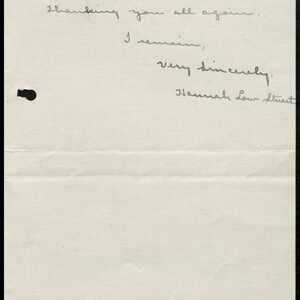 Thanking you all again.
I remain,
Very Sincerely.
Hannah Low